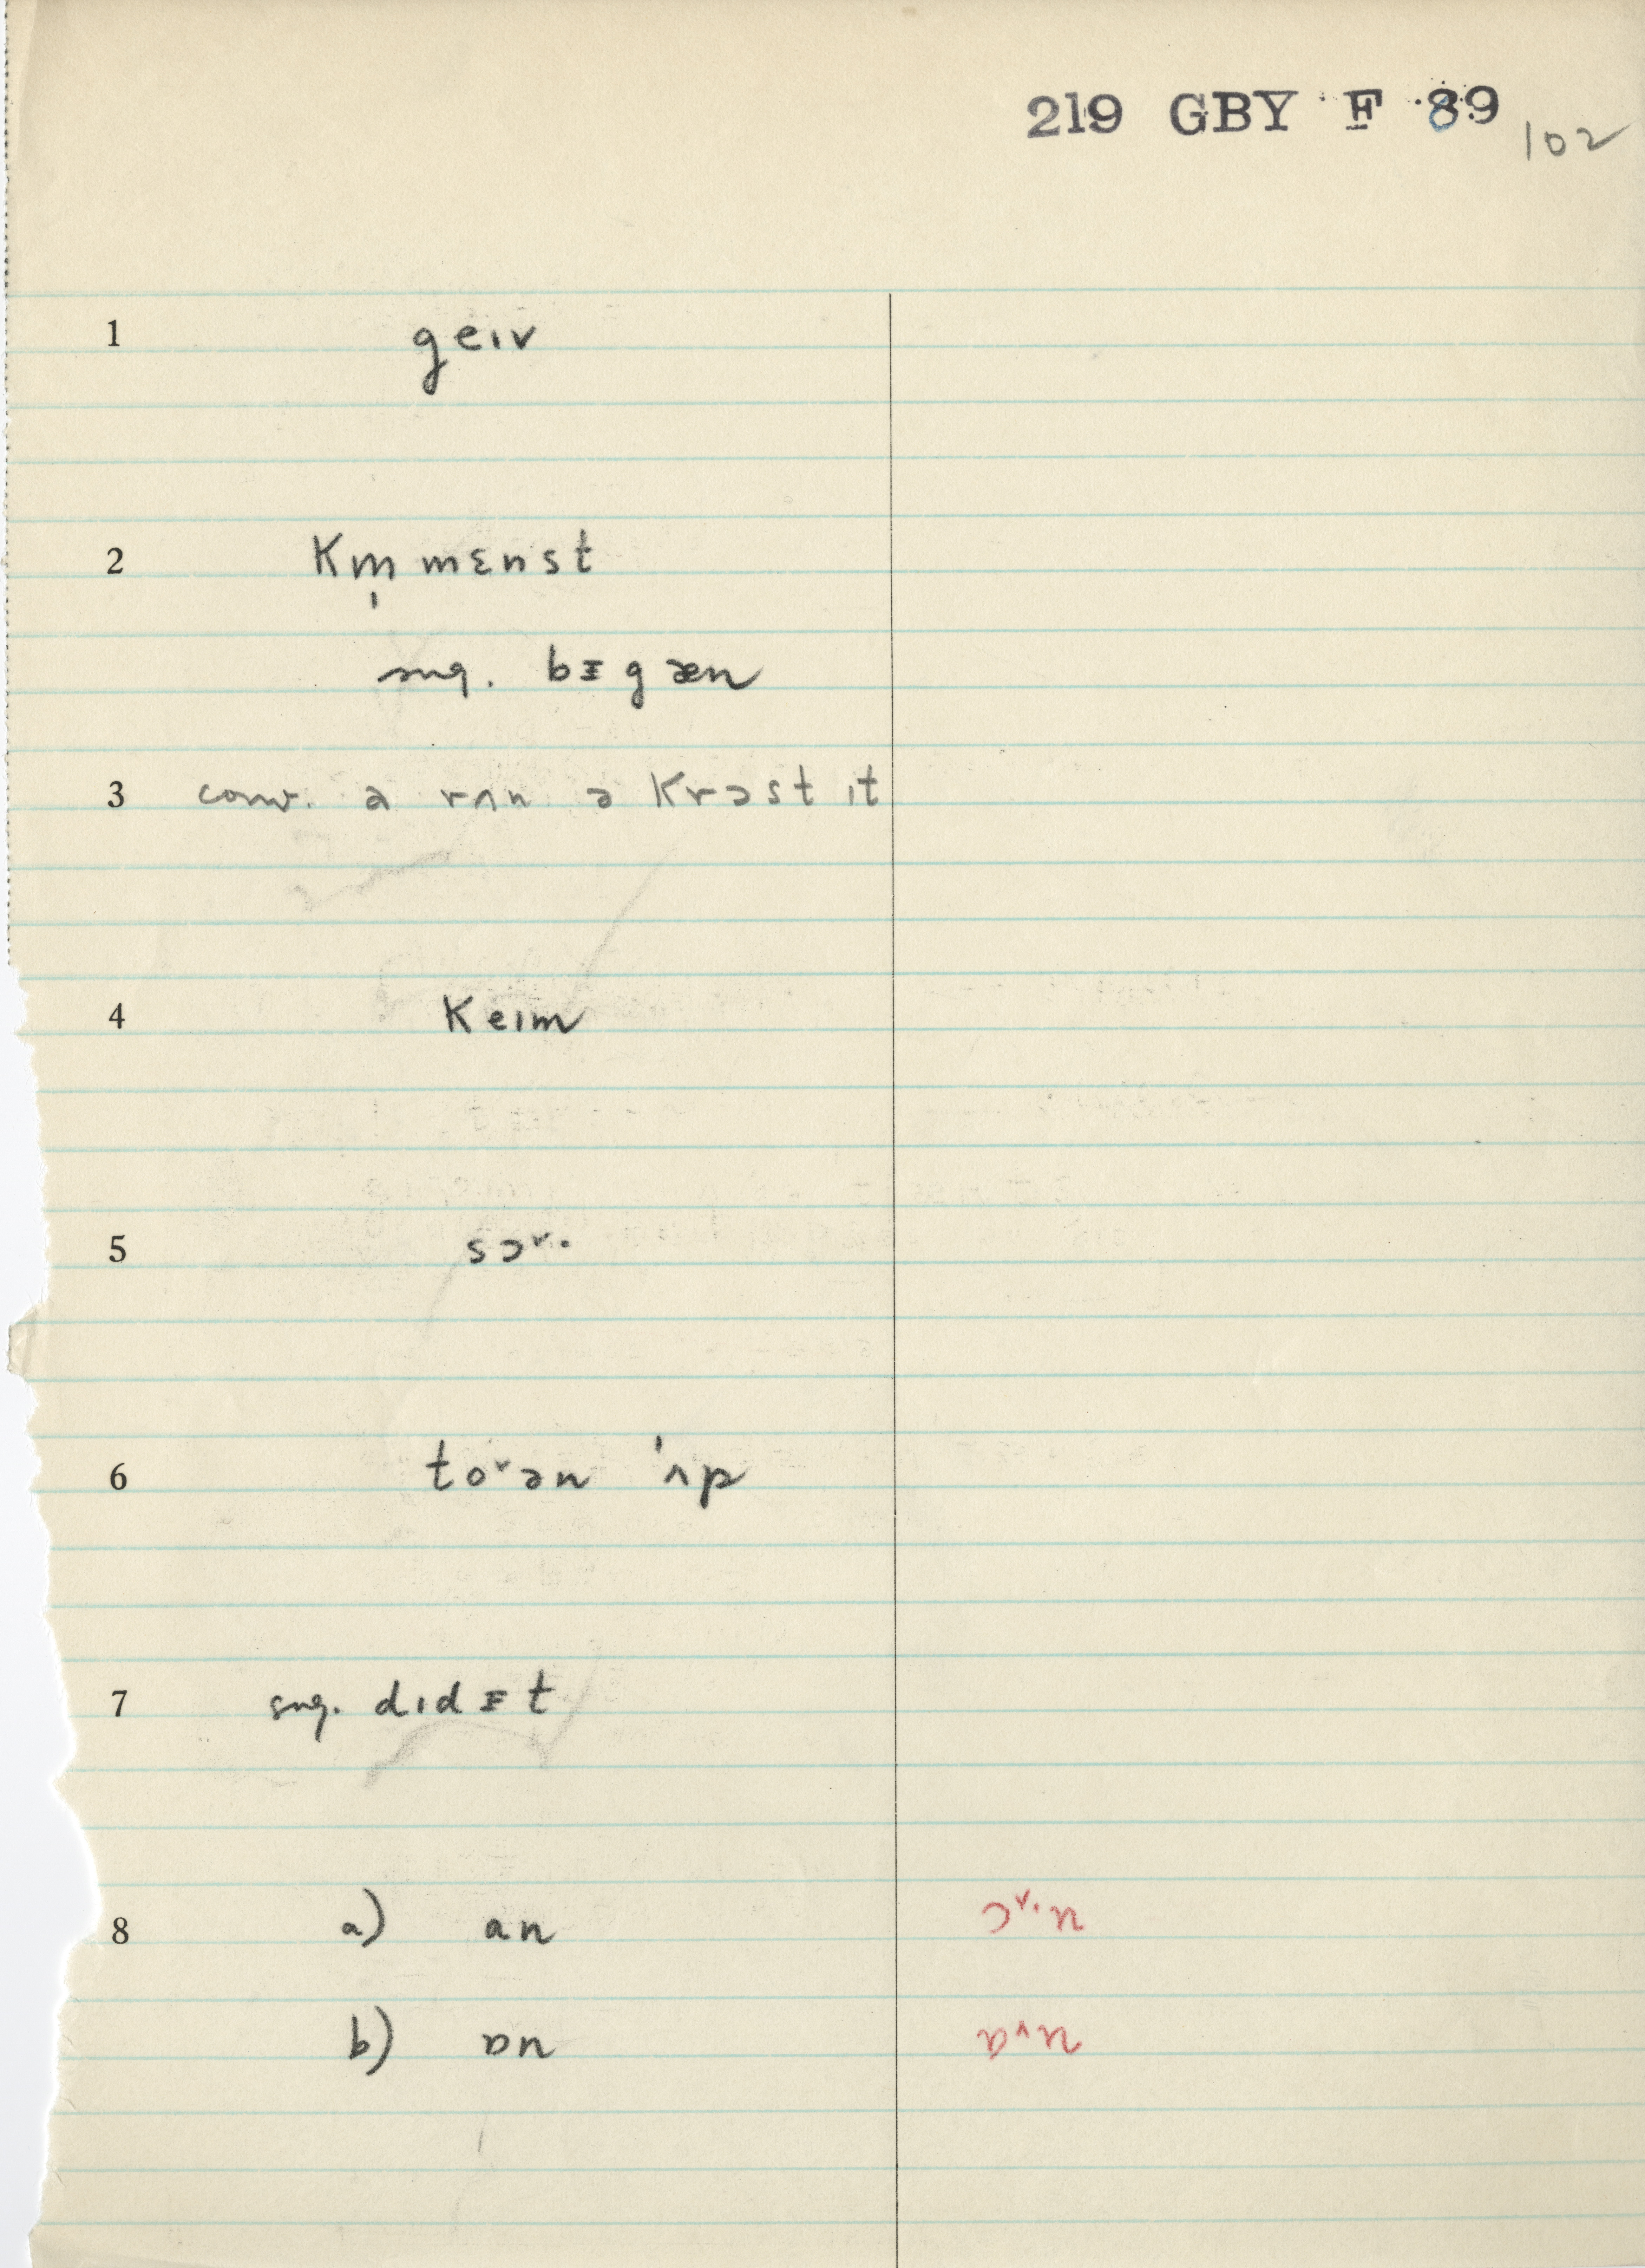 219 GBY F 89 102
1 geɪv
2 km̩ mɛnst
sug. bᵻgæn
3 conv. ə rʌn ə krɔst ɪt
4 keɪm
5 sɔ˅·
6 to˅ən ˈʌp
7 sug. dɪdᵻt
8 a) an ɔ˅·n
b) ɒn ɒ˄n